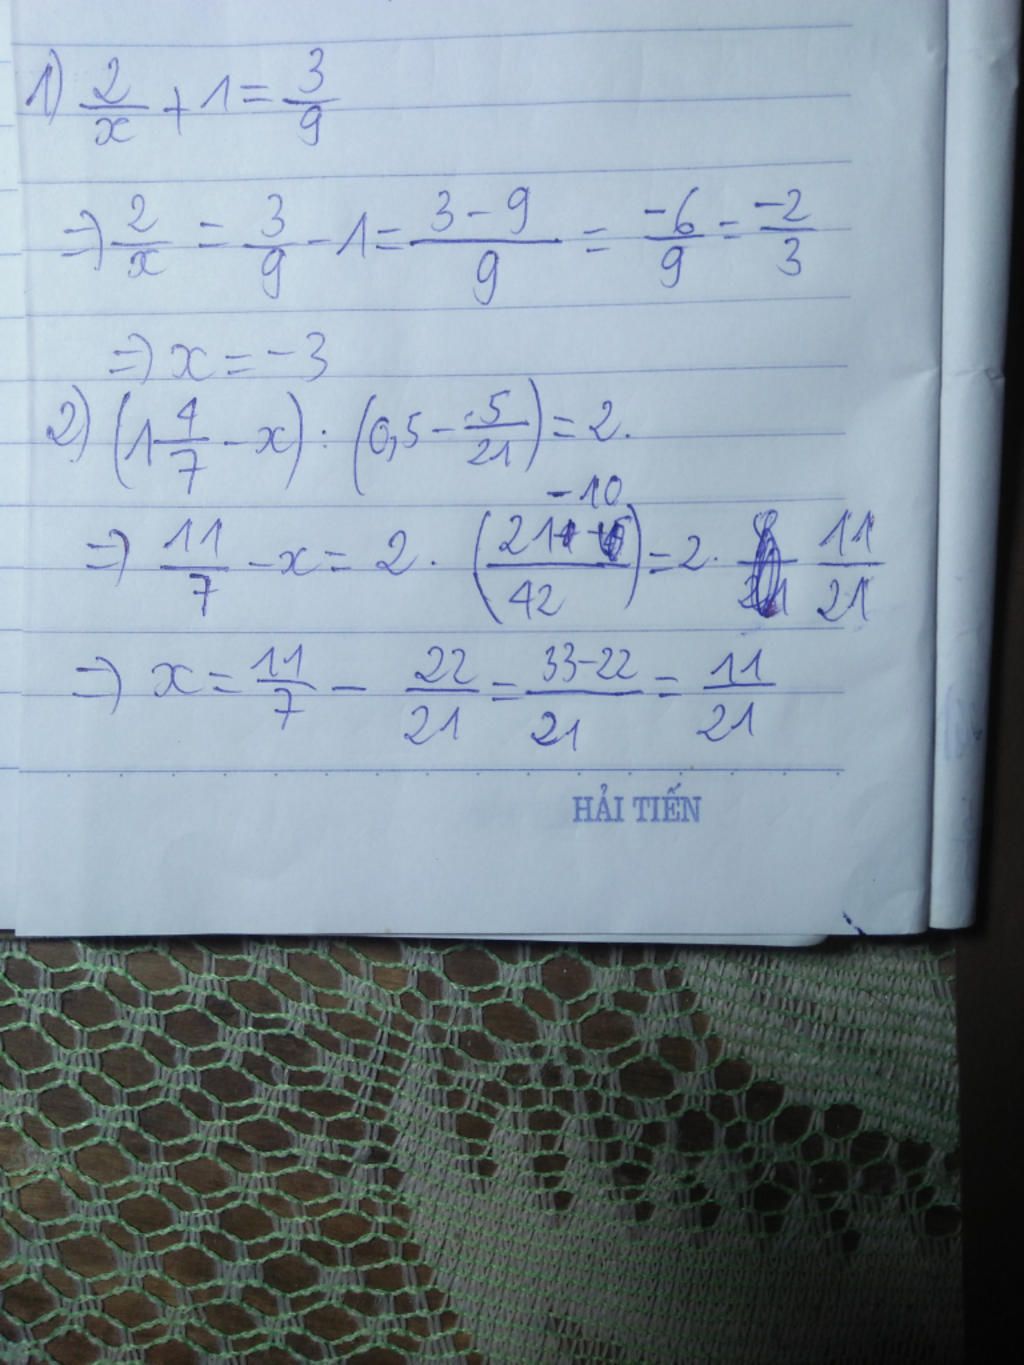 1) 2/x + 1 = 3/9
=> 2/x = 3/9 - 1 = (3-9)/9 = -6/9 = -2/3
=> x = -3
2) (1 4/7 - x) : (0,5 - 5/21) = 2.
=> 11/7 - x = 2 . ((21 - 10)/42) = 2 . 11/21
=> x = 11/7 - 22/21 = (33-22)/21 = 11/21
HẢI TIẾN